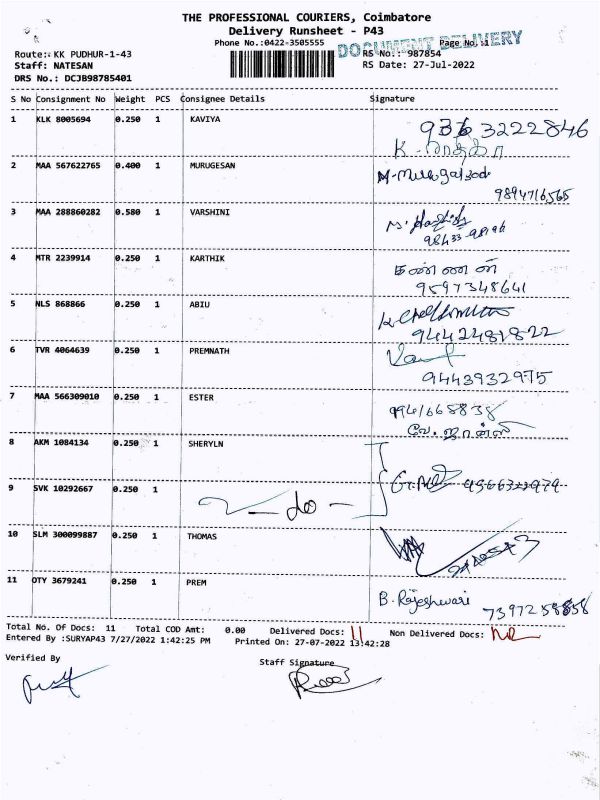 THE PROFESSIONAL COURIERS, Coimbatore
Delivery Runsheet - P43
Phone No.:0422-3505555
DOCUMENT DELIVERY
Page No.:1
Route:- KK PUDHUR-1-43
RS No.: 987854
Staff: NATESAN
RS Date: 27-Jul-2022
DRS No.: DCJB98785401
S No Consignment No Weight PCS Consignee Details Signature
1 KLK 8005694 0.250 1 KAVIYA
3222846
2 MAA 567622765 0.400 1 MURUGESAN
9894716565
3 MAA 288860282 0.580 1 VARSHINI
4 MTR 2239914 0.250 1 KARTHIK கண்ணன்
9597348641
5 NLS 868866 0.250 1 ABIU
9442481822
6 TVR 4064639 0.250 1 PREMNATH
9443932975
7 MAA 566309010 0.250 1 ESTER 9941668838
8 AKM 1084134 0.250 1 SHERYLN
9566322979
9 SVK 10292667 0.250 1 — do —
10 SLM 300099887 0.250 1 THOMAS
11 OTY 3679241 0.250 1 PREM B. Rajeshwari
7397258858
Total No. Of Docs: 11 Total COD Amt: 0.00 Delivered Docs: 11 Non Delivered Docs: Nil
Entered By :SURYAP43 7/27/2022 1:42:25 PM Printed On: 27-07-2022 13:42:28
Verified By Staff Signature